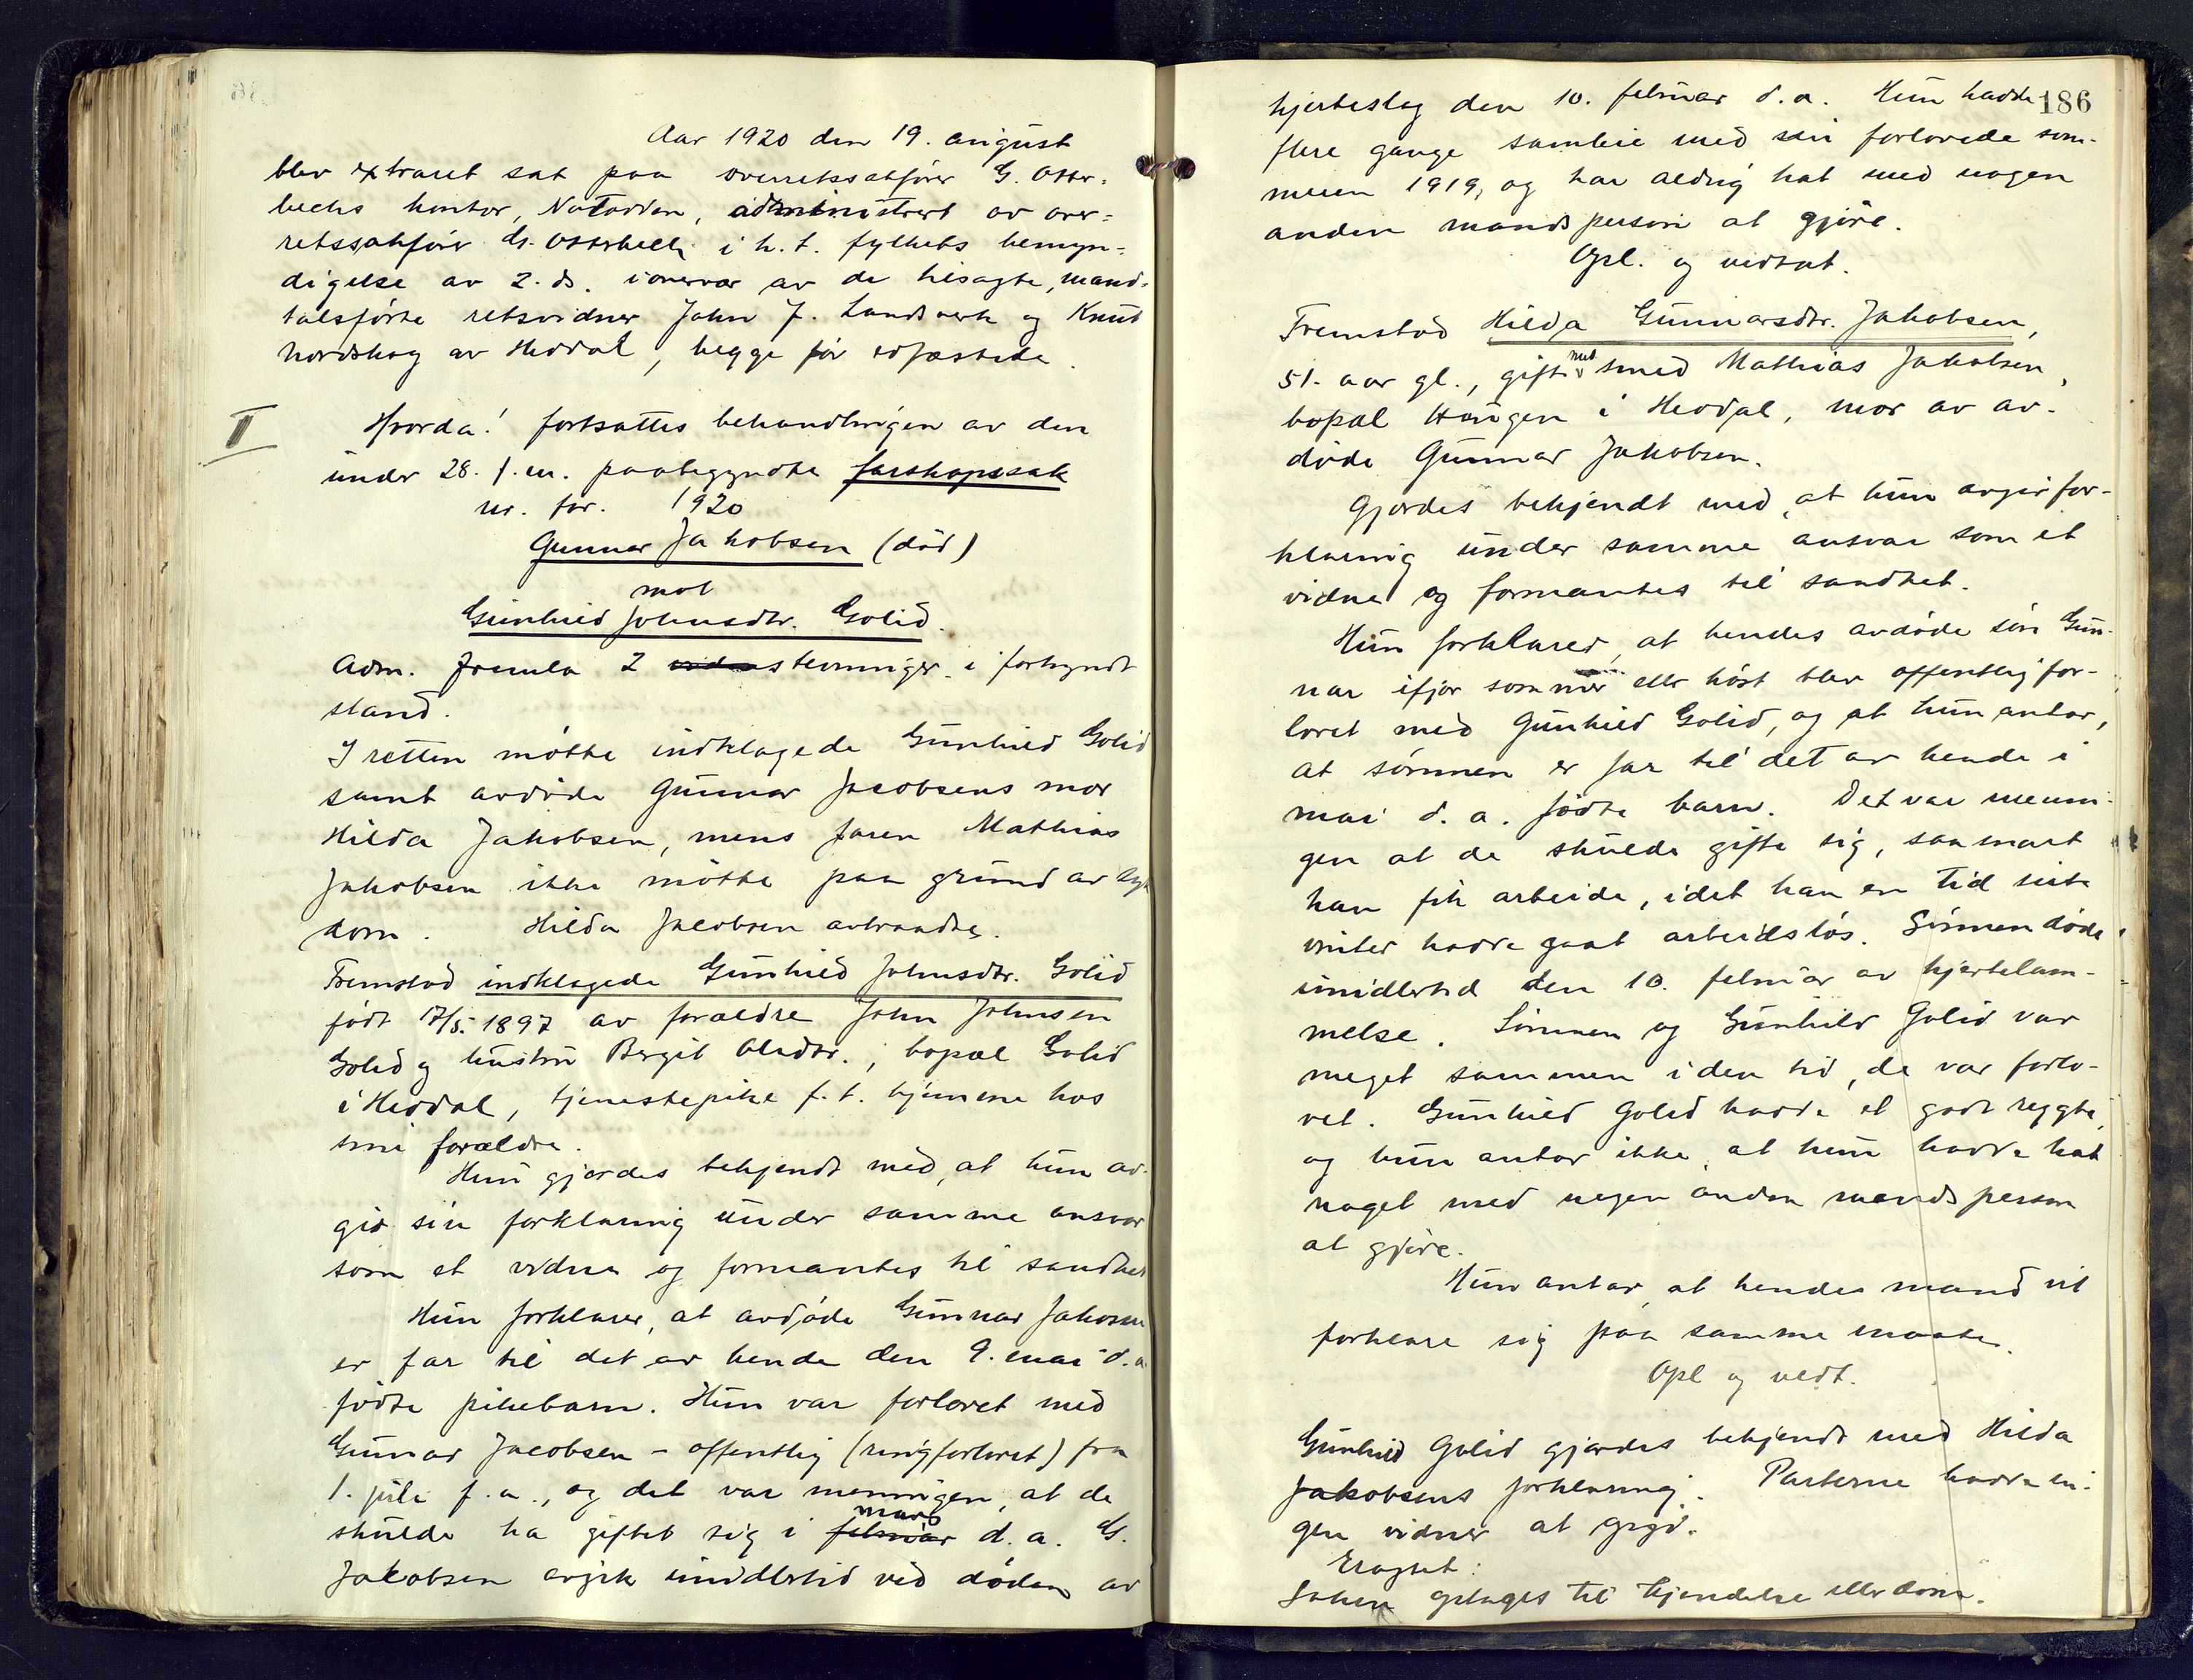 Aar 1920 den 19. august
blev extraret sat paa overretssakfører G. Oster-
bechs kontor, Notodden, administrert av over-
retssakfører G. Osterbech i h. t. fylkets bemyn-
digelse av 2. ds. i overvær av de tilsagte, mand-
talsførte retsvidner John J. Landsverk og Knut
Nordskog av Heddal, begge før edfæstede.
II
Hvorda! fortsattes behandlingen av den
under 28. f. m. paabegyndte farskapssak
nr. for. 1920
Gunnar Jakobsen (död)
mot
Gunhild Johnsdtr. Golid.
Adm. fremla 2 stevninger i forkyndt
stand.
I retten møtte indklagede Gunhild Golid
samt avdøde Gunnar Jacobsens mor
Hilda Jakobsen, mens faren Mathias
Jakobsen ikke møtte paa grund av syk
dom. Hilda Jacobsen avtraadte.
Fremstod indklagede Gunhild Johnsdtr. Golid
født 17/5. 1897 av forældre John Johnsen
Golid og hustru Bergit Olsdtr., bopæl Golid
i Heddal, tjenestepike f. t. hjemme hos
sine forældre.
Hun gjordes bekjendt med, at hun av-
gir sin forklaring under samme ansvar
som et vidne og formantes til sandhet
Hun forklarer, at avdøde Gunnar Jakobsen
er far til det av hende den 9. mai d. a.
fødte pikebarn. Hun var forlovet med
Gunnar Jacobsen - offentlig (ringforlovet) fra
1. juli f. a., og det var meningen, at de
mars
skulde ha giftet sig i februar d. a. G.
Jakobsen avgik imidlertid ved døden av
186
hjerteslag den 10. februar d. a. Hun hadde
flere gange samleie med sin forlovede som-
meren 1919, og har aldrig hat med nogen
anden mandsperson at gjøre.
Opl. og vedtat.
Fremstod Hilda Gunnarsdtr. Jakobsen,
51. aar gl., gift med smed Mathias Jakobsen,
bopæl Haugen i Heddal, mor av av-
døde Gunnar Jakobsen.
Gjordes bekjendt med, at hun avgir for-
klaring under samme ansvar som et
vidne og formantes til sandhet.
Hun forklarer, at hendes avdøde søn Gun-
nar ifjor sommer eller høst blev offentlig for-
lovet med Gunhild Golid, og at hun antar,
at sønnen er far til det av hende i
mai d. a. fødte barn. Det var menin-
gen at de skulde gifte sig, saa snart
han fik arbeide, idet han en tid siste
vinter hadde gaat arbeidsløs. Sønnen døde
imidlertid den 10. februar av hjertelam-
melse. Sønnen og Gunhild Golid var
meget sammen i den tid, de var forlo-
vet. Gunhild Golid hadde et godt rygte,
og hun antar ikke, at hun hadde hat
noget med nogen anden mandsperson
at gjøre.
Hun antar, at hendes mand vil
forklare sig paa samme maate.
Opl og vedt.
Gunhild Golid gjordes bekjendt med Hilda
Jakobsens forklaring. Parterne hadde in-
gen vidner at opgi.
Eragtet:
Saken optages til kjendelse eller dom.